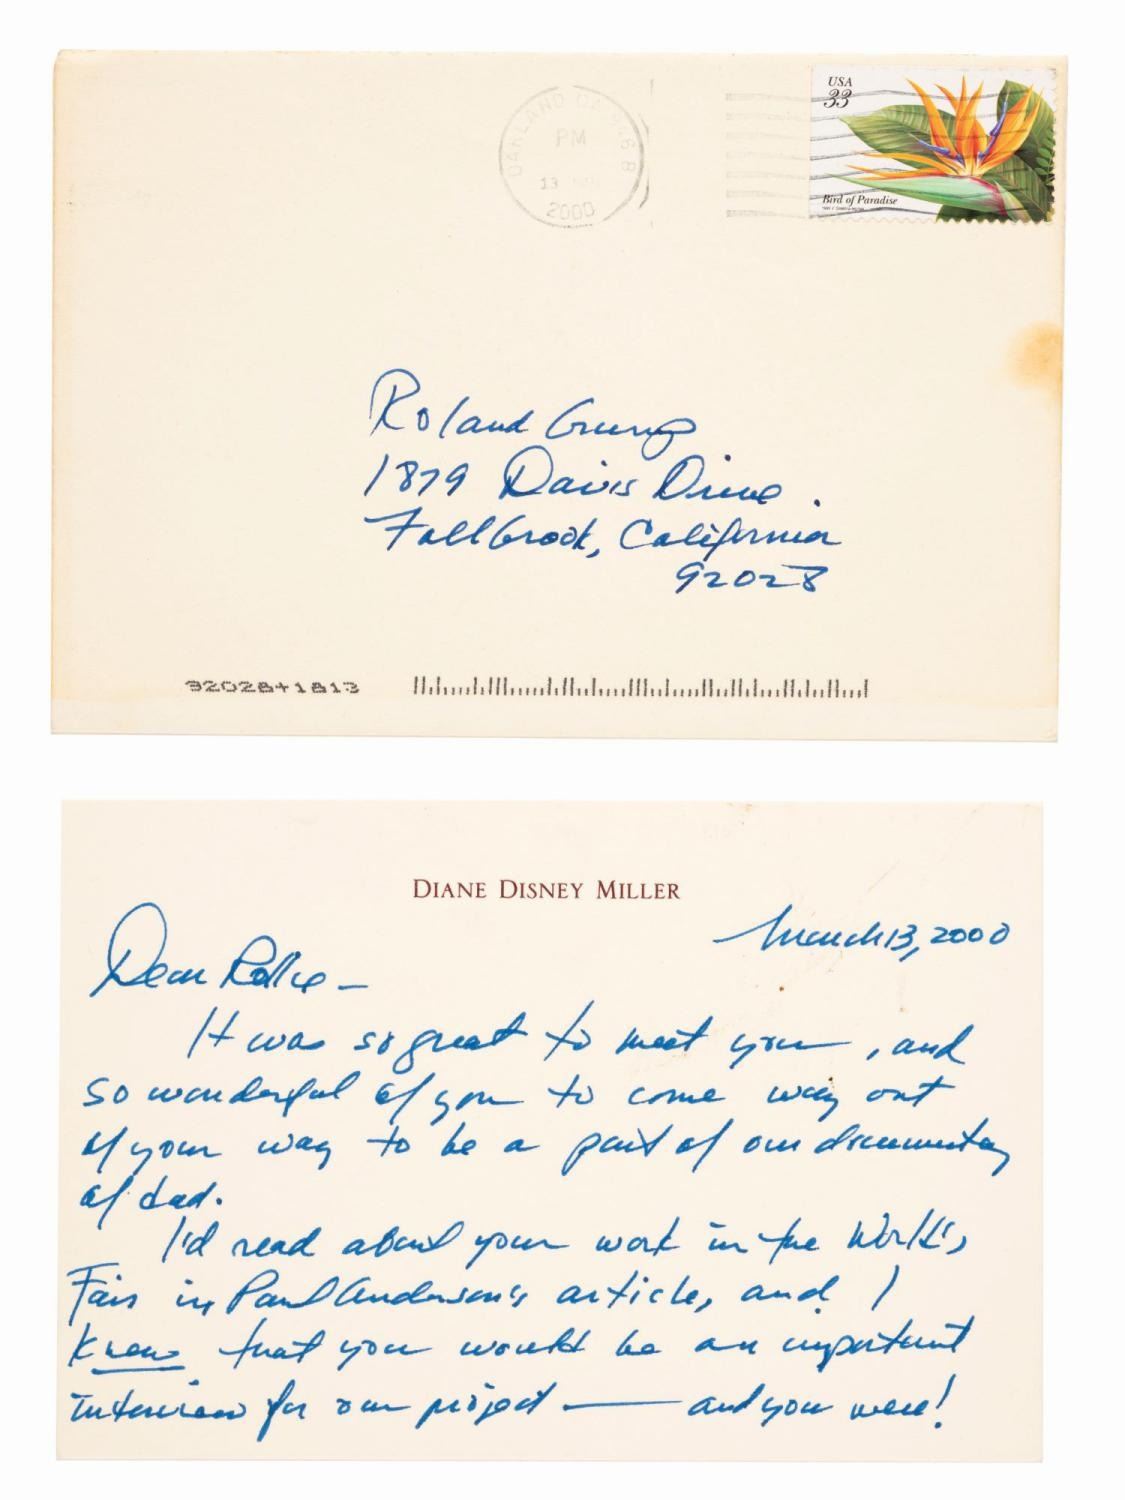 USA
33
Bird of Paradise
OAKLAND CA 946
PM
13
2000
Roland Crump
1879 Davis Drive.
Fallbrook, California
92028
92028+1813
DIANE DISNEY MILLER
March 13, 2000
Dear Rollie -
It was so great to meet you, and
so wonderful of you to come way out
of your way to be a part of our documentary
of dad.
I'd read about your work in the World's
Fair in Paul Anderson's article, and I
knew that you would be an important
interview for our project — and you were!